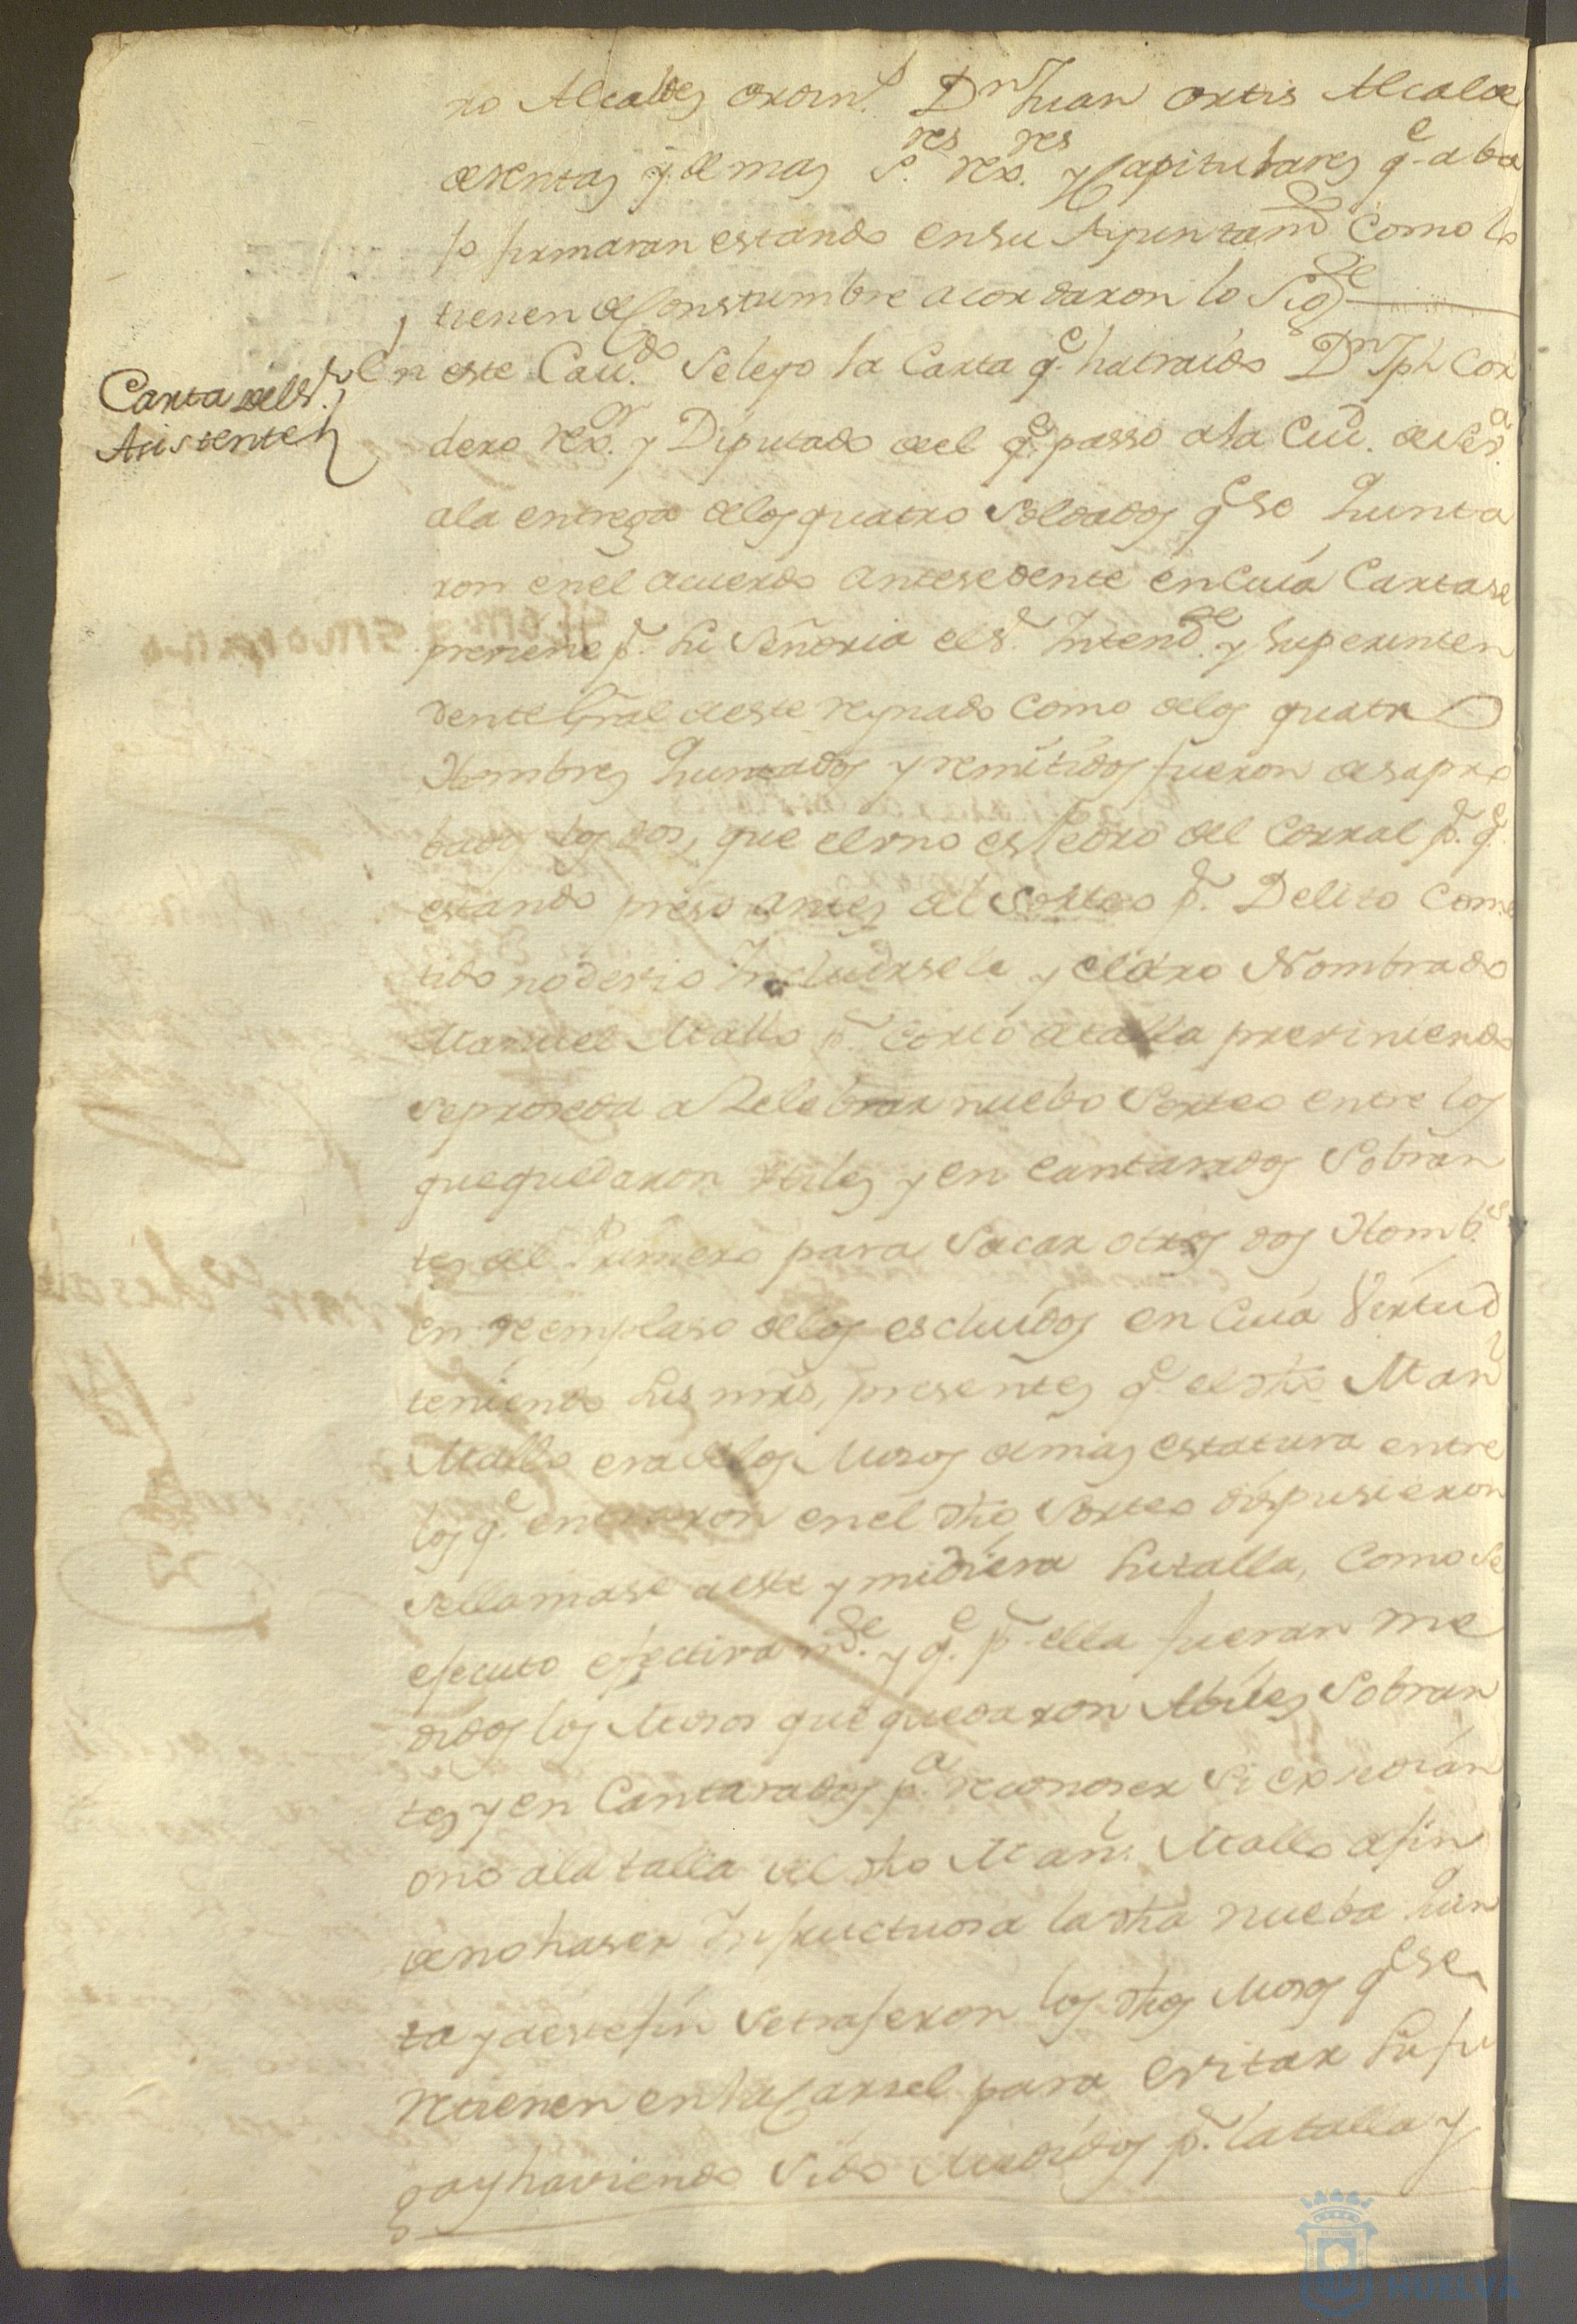 ro Alcaldes ordin.s Dn Juan ortis Alcalde
de rentas y demas S.res rex.res y Capitulares q.e aba
jo firmaran estando en su Ayuntam.to como lo
tienen de Constumbre acordaron lo Sig.te
Carta del S.r
Asistente
En este Cau.do se leyo la Carta q.e ha traido Dn Jph Cor
dero rex.or y Diputado del q.e passo a la Ciu.d de Sev.a
a la entrega de los quatro Soldados q.e se Junta
ron en el acuerdo antesedente en Cuia Carta se
previene p.r su Señoria el S.r Intend.te y superinten
dente Gral de este reynado como de los quatro
Hombres Juntados y remitidos fueron desapro
bados los dos, que el uno es Pedro del Corral p.r q.e
estando preso antes del Sorteo p.r Delito Come
tido no devio Incluirsele y el otro Nombrado
Manuel Mallo p.r corto de talla previniendo
se proseda a Zelebrar nuebo Sorteo entre los
que quedaron utiles y en cantarados Sobran
tes del Primero para Sacar otros dos Homb.es
en reemplaso de los escluidos en Cuia Virtud
teniendo sus mrds, presentes q.e el dho Man.l
Mallo era de los Mosos de mas estatura entre
los q.e entraron en el dho Sorteo dispusieron
se llamase a este y midiera su talla, Como se
ejecuto efectivam.te y q.e p.r ella fueran me
didos los Mosos que quedaron Abiles Sobran
tes y en Cantarados p.a reconoser si exsedian
o no a la talla del dho Man.l Mallo a fin
de no haser Infructuosa la dha nueba Jun
ta y a este fin se trajeron los dhos Mosos q.e se
retienen en la Carsel para evitar su fu
ga y haviendo Sido Medidos p.r la talla y
HUELVA